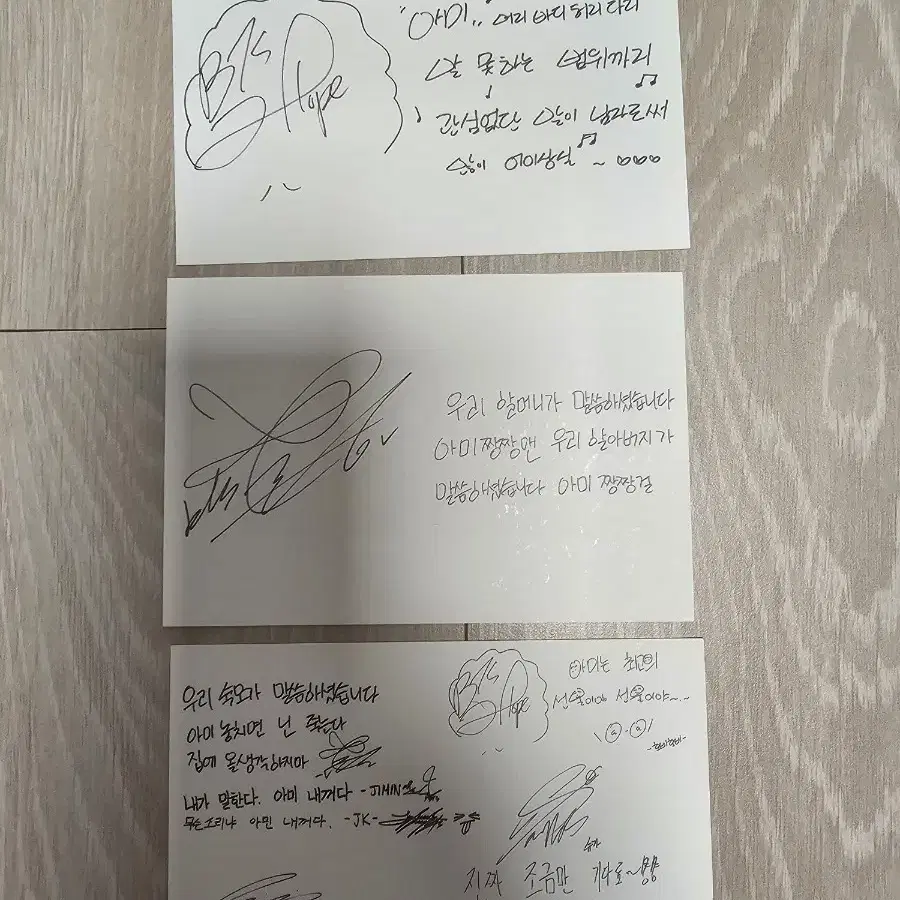 BTS
Hope
"아미" 머리 바디 허리 다리
말 못하는 범위까리
관심없단 말이 남자로써
말이 어이상실 ~ ♡♡♡
bts
우리 할머니가 말씀하셨습니다
아미짱짱맨 우리 할아버지가
말씀하셨습니다 아미 짱짱걸
우리 숙모가 말씀하셨습니다
아미 놓치면 넌 죽는다
집에 올생각하지마
내가 말한다. 아미 내꺼다 -JIMIN
무슨소리냐 아민 내꺼다. -JK-
BTS
Hope
아미는 최고의
선물이야 선물이야~
-호비호비-
슈가
지짜 조금만 기다료~